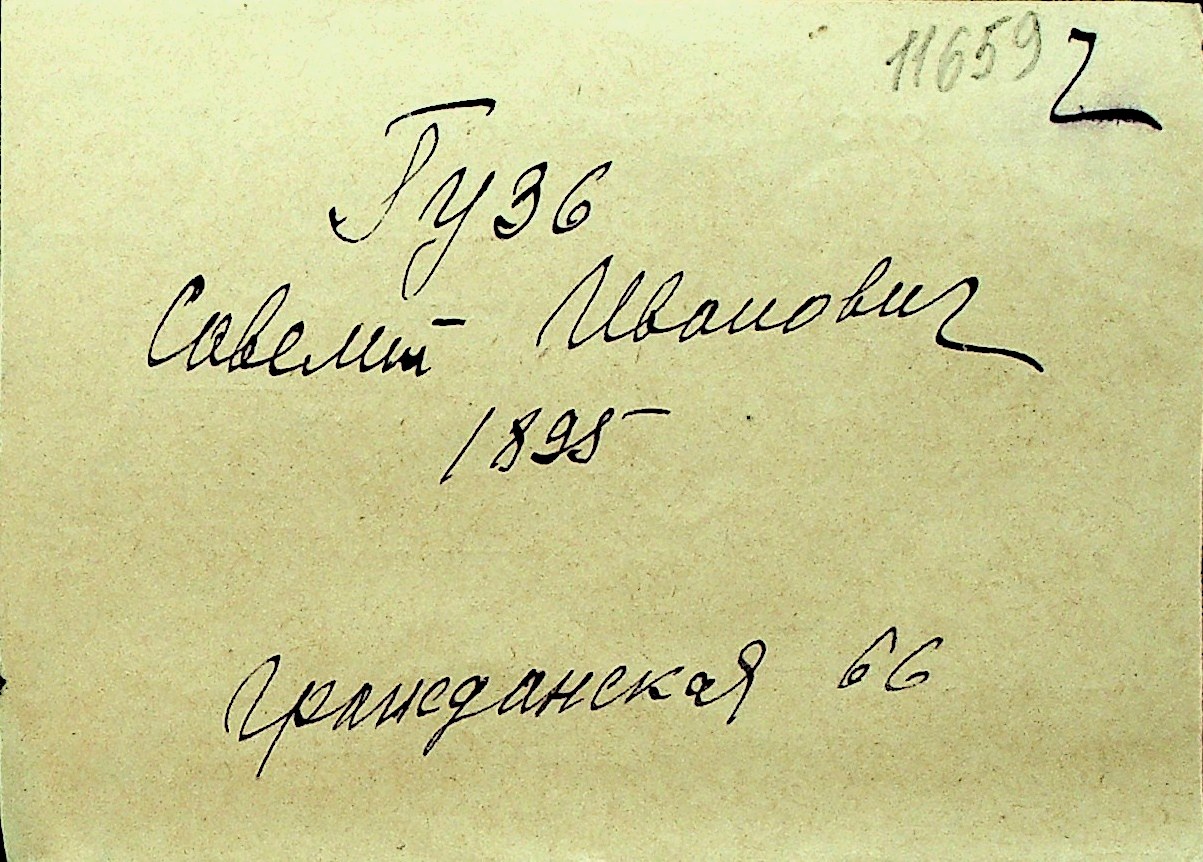 11659 г
Гузь
Савелий Иванович
1895
Гражданская 66